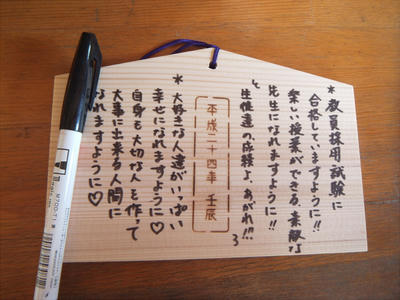 *教員採用試験に
合格していますように!!
楽しい授業ができる、素敵な
先生になれますように!!
生徒達の成績よ、あがれ!!!
平成二十四年 壬辰
*大好きな人達がいっぱい
幸せになれますように♡
自身も大切な人を作って
大事に出来る人間に
なれますように♡